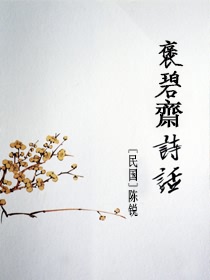 褒碧齋詩話
[民国]陈锐